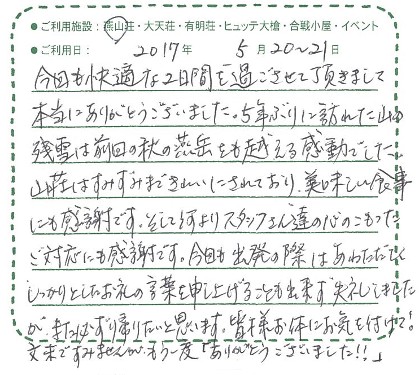 ●ご利用施設：燕山荘・大天荘・有明荘・ヒュッテ大槍・合戦小屋・イベント
●ご利用日： 2017年 5月20～21日
今回も快適な2日間を過ごさせて頂きまして
本当にありがとうございました。5年ぶりに訪れた山の
残雪は前回の秋の燕岳をも越える感動でした。
山荘はすみずみまできれいにされており、美味しい食事
にも感謝です。そして何よりスタッフさん達の心のこもった
ご対応にも感謝です。今回も出発の際はあわただしく
しっかりとしたお礼の言葉を申し上げることも出来ず失礼しました
が、また必ず帰りたいと思います。皆様お体にお気を付けて!
文末ですみませんが、もう一度「ありがとうございました!!」